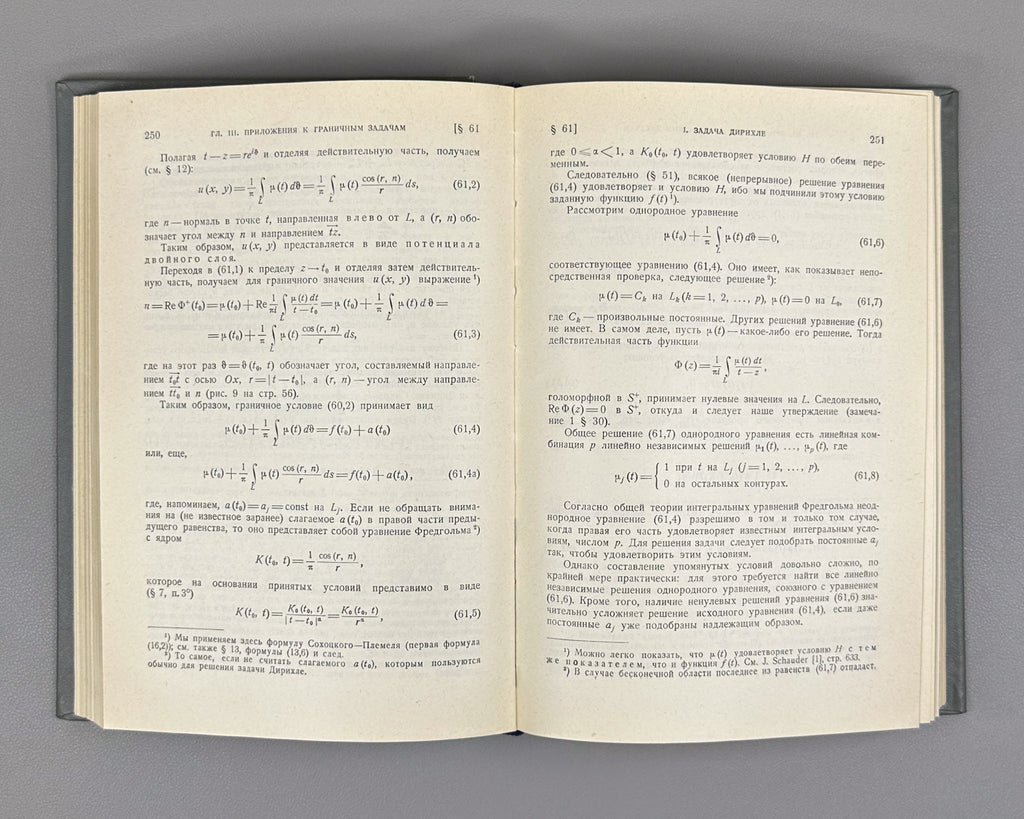 250 ГЛ. III. ПРИЛОЖЕНИЯ К ГРАНИЧНЫМ ЗАДАЧАМ [§ 61
Полагая t — z = re^{iϑ} и отделяя действительную часть, получаем
(см. § 12):
u(x, y) = \frac{1}{π} ∫_L μ(t) dϑ = \frac{1}{π} ∫_L μ(t) \frac{cos(r, n)}{r} ds, (61,2)
где n — нормаль в точке t, направленная влево от L, а (r, n) обо-
значает угол между n и направлением \overrightarrow{tz}.
Таким образом, u(x, y) представляется в виде потенциала
двойного слоя.
Переходя в (61,1) к пределу z → t₀ и отделяя затем действитель-
ную часть, получаем для граничного значения u(x, y) выражение ¹)
u = Re Φ⁺(t₀) = μ(t₀) + Re \frac{1}{πi} ∫_L \frac{μ(t) dt}{t — t₀} = μ(t₀) + \frac{1}{π} ∫_L μ(t) dϑ =
= μ(t₀) + \frac{1}{π} ∫_L μ(t) \frac{cos(r, n)}{r} ds, (61,3)
где на этот раз ϑ = ϑ(t₀, t) обозначает угол, составляемый направле-
нием \overrightarrow{t₀t} с осью Ox, r = |t — t₀|, а (r, n) — угол между направле-
нием \overrightarrow{tt₀} и n (рис. 9 на стр. 56).
Таким образом, граничное условие (60,2) принимает вид
μ(t₀) + \frac{1}{π} ∫_L μ(t) dϑ = f(t₀) + a(t₀) (61,4)
или, еще,
μ(t₀) + \frac{1}{π} ∫_L μ(t) \frac{cos(r, n)}{r} ds = f(t₀) + a(t₀), (61,4a)
где, напоминаем, a(t₀) = a_j = const на L_j. Если не обращать внима-
ния на (не известное заранее) слагаемое a(t₀) в правой части преды-
дущего равенства, то оно представляет собой уравнение Фредгольма ²)
с ядром
K(t₀, t) = \frac{1}{π} \frac{cos(r, n)}{r},
которое на основании принятых условий представимо в виде
(§ 7, п. 3°)
K(t₀, t) = \frac{K₀(t₀, t)}{|t — t₀|^α} = \frac{K₀(t₀, t)}{r^α}, (61,5)
¹) Мы применяем здесь формулу Сохоцкого—Племеля (первая формула
(16,2)); см. также § 13, формулы (13,6) и след.
²) То самое, если не считать слагаемого a(t₀), которым пользуются
обычно для решения задачи Дирихле.
§ 61] I. ЗАДАЧА ДИРИХЛЕ 251
где 0 ⩽ α < 1, а K₀(t₀, t) удовлетворяет условию H по обеим пере-
менным.
Следовательно (§ 51), всякое (непрерывное) решение уравнения
(61,4) удовлетворяет и условию H, ибо мы подчинили этому условию
заданную функцию f(t) ¹).
Рассмотрим однородное уравнение
μ(t₀) + \frac{1}{π} ∫_L μ(t) dϑ = 0, (61,6)
соответствующее уравнению (61,4). Оно имеет, как показывает непо-
средственная проверка, следующее решение ²):
μ(t) = C_k на L_k (k = 1, 2, ..., p), μ(t) = 0 на L₀, (61,7)
где C_k — произвольные постоянные. Других решений уравнение (61,6)
не имеет. В самом деле, пусть μ(t) — какое-либо его решение. Тогда
действительная часть функции
Φ(z) = \frac{1}{πi} ∫_L \frac{μ(t) dt}{t — z},
голоморфной в S⁺, принимает нулевые значения на L. Следовательно,
Re Φ(z) = 0 в S⁺, откуда и следует наше утверждение (замеча-
ние 1 § 30).
Общее решение (61,7) однородного уравнения есть линейная ком-
бинация p линейно независимых решений μ₁(t), ..., μ_p(t), где
μ_j(t) = { 1 при t на L_j (j = 1, 2, ..., p), (61,8)
0 на остальных контурах.
Согласно общей теории интегральных уравнений Фредгольма неод-
нородное уравнение (61,4) разрешимо в том и только том случае,
когда правая его часть удовлетворяет известным интегральным усло-
виям, числом p. Для решения задачи следует подобрать постоянные a_j
так, чтобы удовлетворить этим условиям.
Однако составление упомянутых условий довольно сложно, по
крайней мере практически: для этого требуется найти все линейно
независимые решения однородного уравнения, союзного с уравнением
(61,6). Кроме того, наличие ненулевых решений уравнения (61,6) зна-
чительно усложняет решение исходного уравнения (61,4), если даже
постоянные a_j уже подобраны надлежащим образом.
¹) Можно легко показать, что μ(t) удовлетворяет условию H с тем
же показателем, что и функция f(t). См. J. Schauder [1], стр. 633.
²) В случае бесконечной области последнее из равенств (61,7) отпадает.